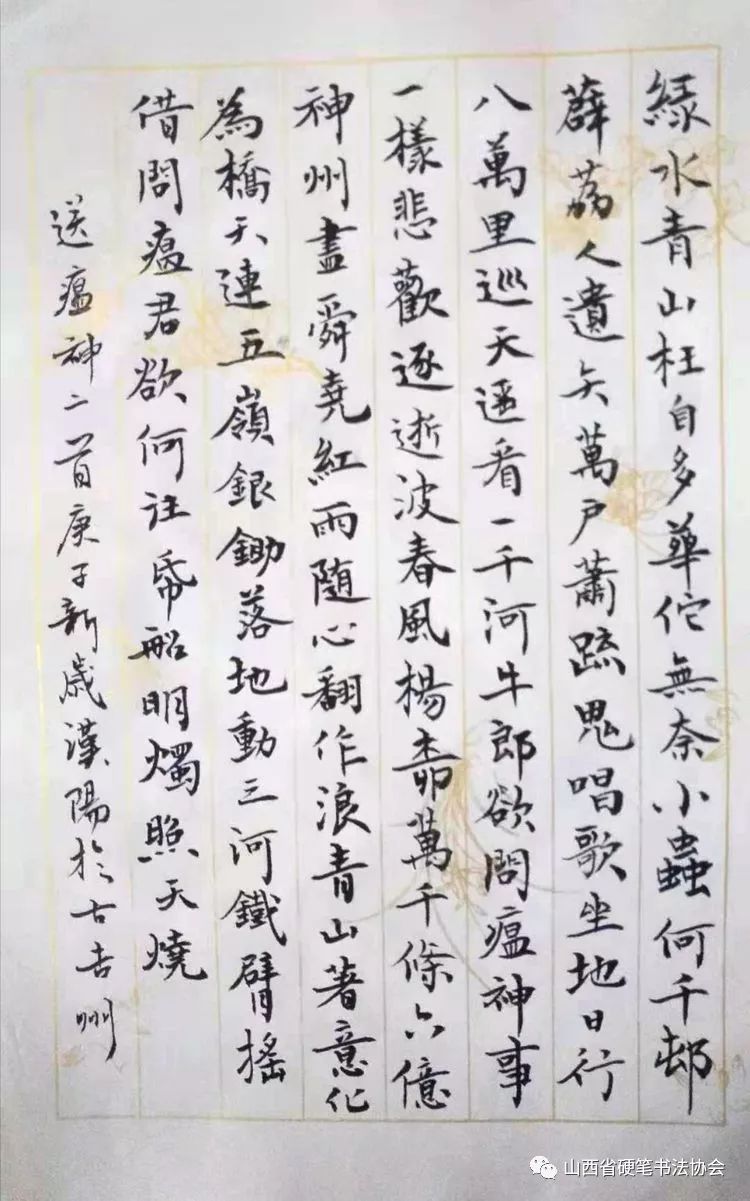 緑水青山枉自多華佗無奈小蟲何千邨
薜荔人遺矢萬戶蕭疏鬼唱歌坐地日行
八萬里巡天遥看一千河牛郎欲問瘟神事
一樣悲歡逐逝波春風楊柳萬千條六億
神州盡舜堯紅雨隨心翻作浪青山著意化
為橋天連五嶺銀鋤落地動三河鐵臂搖
借問瘟君欲何往帋船明燭照天燒
送瘟神二首庚子新歲漢陽於古吉州
山西省硬笔书法协会